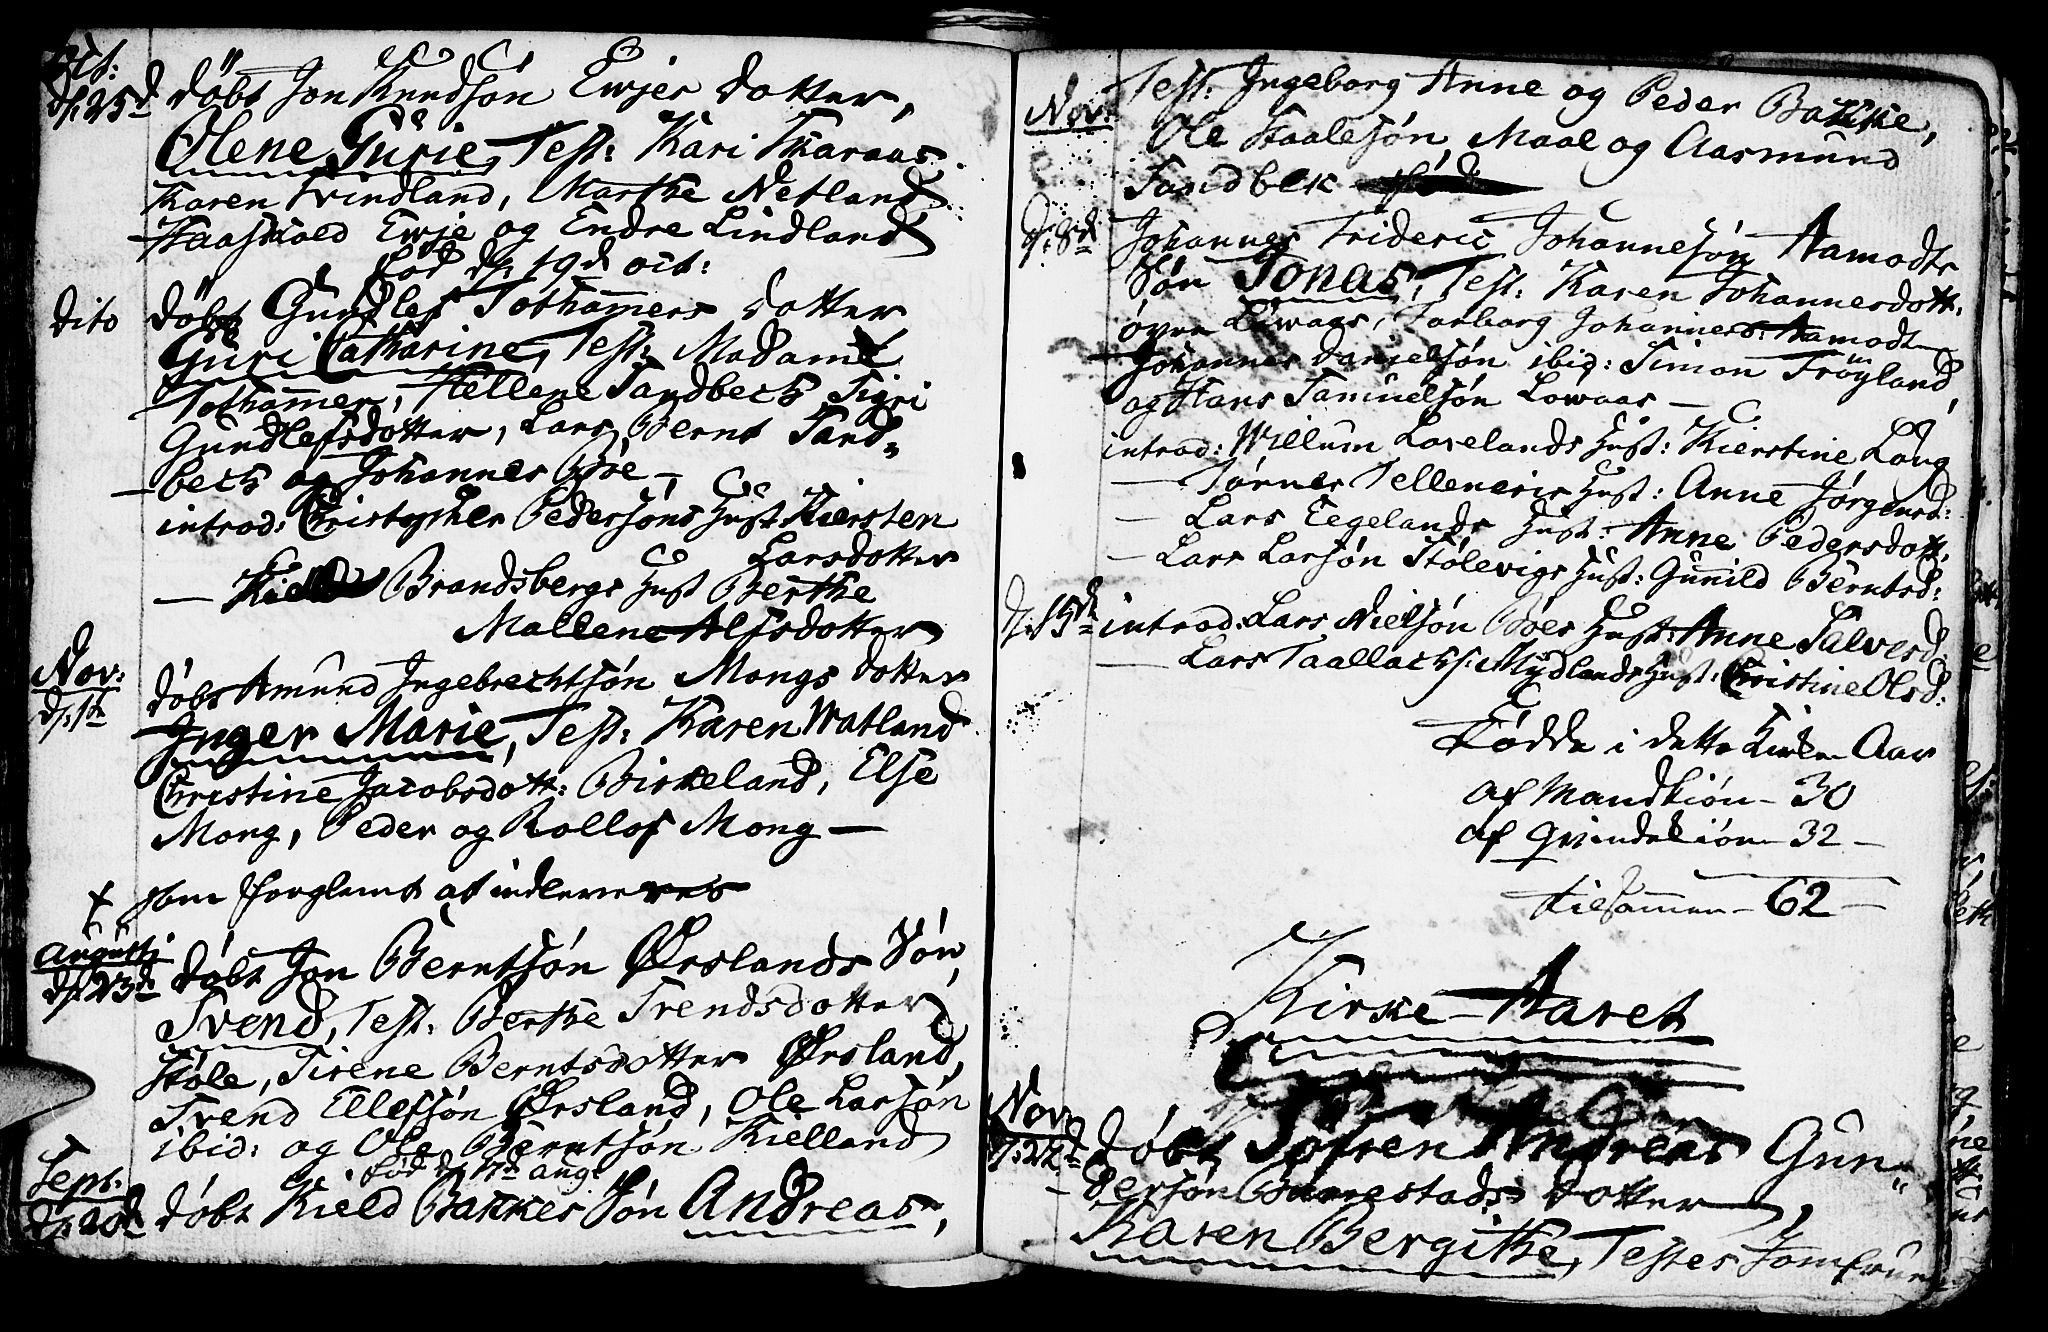 Oct:
d: 25d döbt Jon Knudsøn Ewjes dotter,
Olene Gurie, Test: Kari Skaraas
Karen Svindland, Marthe Netland
Haaskold Ewje og Endre Lindland
fød d: 19d oct:
dito döbt Gundlef Tothamers dotter
Guri Catharine, Test: Madame
Tothamer, Hellene Sandbech Sigri
Gundlefsdotter, Lars Bernt Sand-
bech og Johannes Bøe -
introd: Christopher Pedersøns Hust Kiersten
Larsdotter
— Brandsbergs Hust Berthe
Mallene Alfsdotter
Nov:
d: 1st döbt Amund Ingebrechtsøn Mongs dotter
Inger Marie, Test: Karen Watland
Christine Jacobsdott: Birkeland, Else
Mong, Peder og Rollof Mong —
+ som forglemt at indleveres
Augusti
d: 23d döbt Jon Berntsøn Ørslands Søn,
Svend, Test: Berthe Svendsdotter
Støle, Sirene Berntsdotter Ørsland,
Svend Ellefsøn Ørsland, Ole Larsøn
ibid: og Ole Berntsøn Kielland
fød d 17d aug:
Sept:
d: 20d döbt Kield Bakkes Søn Andreas,
Nov: Test: Ingeborg Anne og Peder Bakke,
Ole Staalesøn Maal og Aasmund
Sandbek
d: 8d Johannes Frideric Johannesøn Aamodts
Søn Jonas, Test: Karen Johannesdott:
øvre Lowaas, Torborg Johannesd: Aamodt
Johannes Danielsøn ibid: Simon Frøyland,
og Hans Samuelsøn Lowaas —
introd: Willum Lavelands Hust: Kierstine Lang
— Tørres Tellenesis Hust: Anne Jørgensd:
— Lars Eegelands Hust: Anne Pedersdott.
— Lars Larsøn Stølevigs Hust: Gunild Berntsd:
d: 15d introd: Lars Nielsøn Bøes Hust: Anne Salvesd.
— Lars Taallachs: Mydlands Hust: Christine Olsd:
Fødde i dette Kirke Aar
af Mandkiøn — 30
af Qvindekiøn — 32 —
tilsammen — 62 —
Kirke-Aaret
Nov
d: 22d döbt Søfren Andreas Gun-
dersøn Baarestads dotter,
Karen Bergithe, Testes Jomfruen